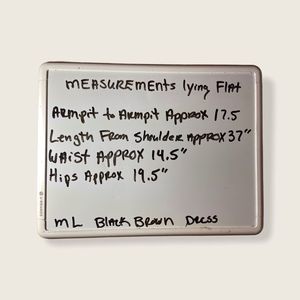 MEASUREMENTS lying Flat
Armpit to Armpit Approx 17.5
Length From Shoulder Approx 37"
Waist Approx 14.5"
Hips Approx 19.5"
ML Black Brown Dress